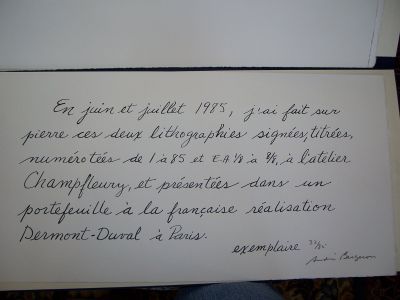 En juin et juillet 1985, j'ai fait sur
pierre ces deux lithographies signées, titrées,
numérotées de 1 à 85 et E.A 1/8 à 8/8, à l'atelier
Champfleury, et présentées dans un
portefeuille à la française réalisation
Dermont-Duval à Paris.
exemplaire